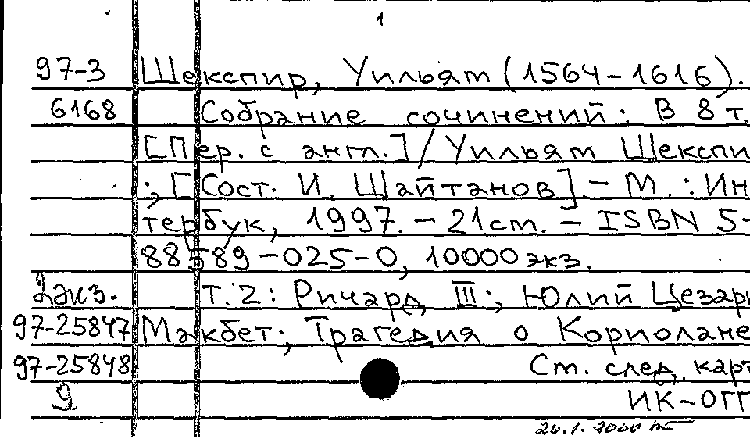 1
97-3 Шекспир, Уильям (1564-1616).
6168 Собрание сочинений: В 8 т
[Пер. с англ.]/Уильям Шекспи
; [Сост. И. Шайтанов]. - М. : Ин
тербук, 1997. - 21 см. - ISBN 5-
88589-025-0, 10000 экз.
2 экз. Т. 2: Ричард III; Юлий Цезар
97-25847 Макбет; Трагедия о Кориолане
97-25848 См. след. карт
9 ИК-ОГГ